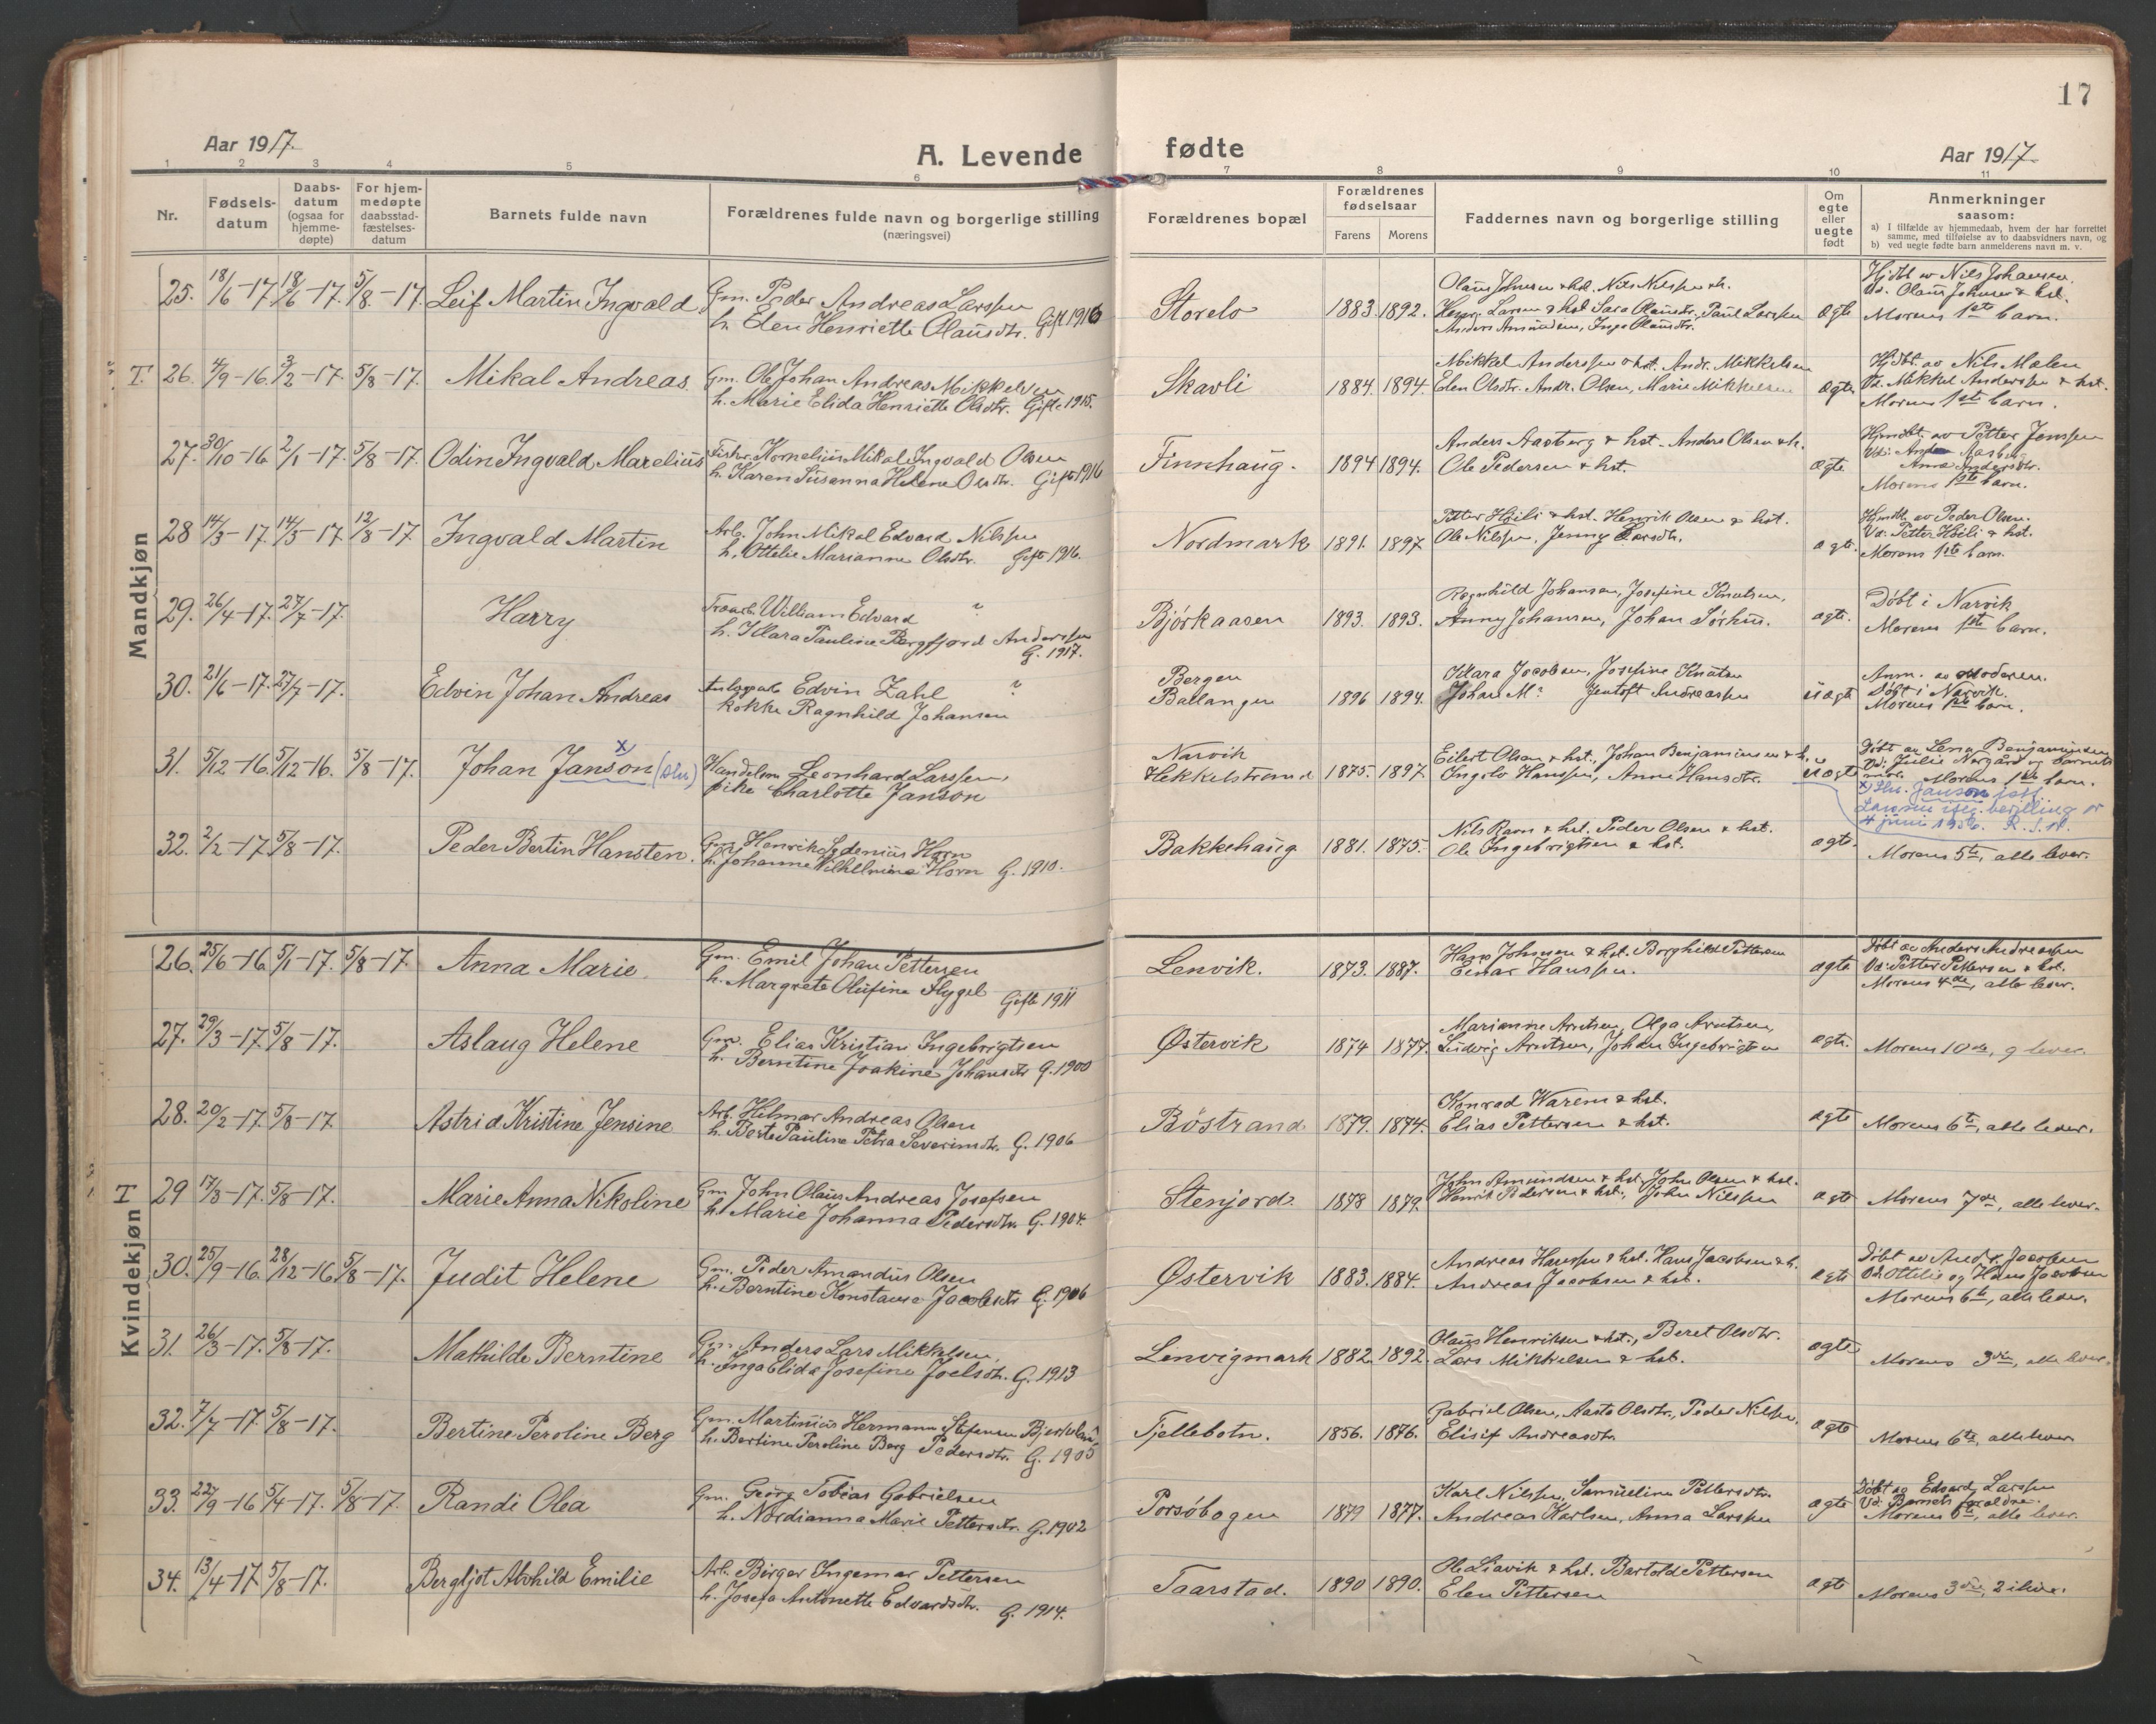 17
Aar 1917.
A. Levende fødte
Aar 1917.
1 2 3 4 5 6 7 8 9 10 11
Nr.
Fødsels-datum
Daabs-datum (ogsaa for hjemme-døpte)
For hjem-medøpte daabsstad-fæstelses-datum
Barnets fulde navn
Forældrenes fulde navn og borgerlige stilling (næringsvei)
Forældrenes bopæl
Forældrenes fødselsaar
Farens Morens
Faddernes navn og borgerlige stilling
Om egte eller uegte født
Anmerkninger saasom:
a) I tilfælde av hjemmedaab, hvem der har forrettet samme, med tilføielse av to daabsvidners navn, og
b) ved uegte fødte barn anmelderens navn m. v.
Mandkjøn
25. 18/6-17. 18/6-17. 5/8-17. Leif Martin Ingvald. Gm. Peder Andreas Larssen
h. Elen Henriette Olausdtr. Gift 1916
Storelv 1883. 1892. Olaus Johnsen & hst. Nils Nilssen & h.
Henr. Larsen & hst. Sara Olausdtr., Paul Larssen
Anders Amundsen, Inga Olausdtr.
ægte Hjdbt. av Nils Johansen.
Vd. Olaus Johnsen & hst.
Morens 1ste barn.
T. 26. 4/9-16. 3/2-17. 5/8-17. Mikal Andreas. Gm. Ole Johan Andreas Mikkelsen
h. Marie Elida Henriette Olsdtr. Gift 1915.
Skavli 1884. 1894. Mikkel Anderssen & hst. Andr. Mikkelsen
Elen Olsdtr. Andr. Olsen, Marie Mikkelsen
ægte Hjdbt. av Nils Molen
Vd. Mikkel Anderssen & hst.
Morens 1ste barn.
27. 30/10-16. 2/1-17. 5/8-17. Odin Ingvald Marelius Fisker Kornelius Mikal Ingvald Olsen
h. Karen Susanna Helene Olsdtr. Gift 1916
Finnhaug. 1894 1894. Anders Aasberg & hst. Anders Olsen & h.
Ole Pedersen & hst.
ægte Hjmdbt. av Petter Jenssen
Vd: Anders Aasberg
Anna Andersdtr.
Morens 1ste barn.
28 14/3-17. 14/5-17. 12/8-17. Ingvald Martin Arb. John Mikal Edvard Nilssen
h. Ottelie Marianne Olsdtr. Gift 1916.
Nordmark 1891. 1897 Petter Hjeili & hst. Henrik Olsen & hst.
Ole Nilssen, Jenny Larsdtr.
ægte. Hjmdbt. av Peder Olsen.
Vd: Petter Hjeili & hst.
Morens 1ste barn.
29. 26/4-17. 27/7-17. Harry William Edvard ?
h. Klara Pauline Bergfjord Anderssen
G. 1917.
Bjørkaasen 1893. 1893. Ragnhild Johansen, Josefine Knutsen,
Anny Johansen, Johan Sørhus.
ægte. Døbt i Narvik
Morens 1ste barn.
30. 21/6-17. 27/7-17. Edvin Johan Andreas Edvin Zahl ?
kokke Ragnhild Johansen
Bergen
Ballangen 1896 1894. Klara Jacobsen, Josefine Knutsen
Johan M? Jentoft Andreassen
uægte Anm. av Moderen.
Døbt i Narvik.
Morens 1ste barn.
31. 5/12-16. 5/12-16. 5/8-17. Johan Janson x) Handelsm. Leonhard Larssen,
pike Charlotte Janson
Narvik
Hekkelstrand 1875. 1897. Eilert Olsen & hst., Johan Benjaminsen & h.
Ingolv Hanssen, Anne Hansdtr.
uægte Døbt av Lena Benjaminsen
Vd: Julie Norgård og barnets
mor. Morens 1ste barn.
x) Janson
Larsen bevilling av
4 juni 1956. R. S. N.
32. 2/2-17. 5/8-17. Peder Bertin Hansten. Gm. Henrik Sedenius Horn
h. Johanne Vilhelmine Horn G. 1910.
Bakkehaug 1881. 1875. Nils Ravn & hst. Peder Olsen & hst.
Ole Ingebrigtsen & hst.
ægte. Morens 5te, alle lever.
Kvindekjøn
26. 25/6-16. 5/1-17. 5/8-17. Anna Marie. Gm. Emil Johan Pettersen
h. Margrete Olufine Flygel Gift 1911
Lenvik. 1873. 1887. Hans Johnsen & hst. Borghild Pettersen
Einar Hanssen.
ægte Døbt av Anders Andreassen
Vd: Petter Pettersen & hst.
Morens 4de, alle lever.
27. 29/3-17. 5/8-17. Aslaug Helene Gm. Elias Kristian Ingebrigtsen
h. Berntine Joakine Johansdtr G. 1900
Østervik 1874 1877. Marianne Arntsen, Olga Arntsen,
Ludvig Arntsen, Johan Ingebrigtsen
ægte. Morens 10de, 9 lever.
28. 20/2-17. 5/8-17. Astrid Kristine Jensine Arb. Hilmar Andreas Olsen
h. Berte Pauline Petra Severinsdtr. G. 1906
Bøstrand 1879. 1874. Konrad Warem & hst.
Elias Pettersen & hst.
ægte Morens 6te, alle lever.
T 29 17/3-17. 5/8-17. Marie Anna Nikoline Gm John Olaus Andreas Josefsen
h. Marie Johanna Pedersdtr G. 1904.
Stenjord. 1878 1879. John Amundsen & hst. John Olsen & hst.
Henrik Pedersen & hst., John Nilssen
ægte Morens 7de, alle lever.
30. 25/9-16. 28/12-16 5/8-17. Judit Helene Gm. Peder Amandus Olsen
h. Berntine Konstanse Jacobsdtr G. 1906
Østervik 1883. 1884. Andreas Hanssen & hst. Hans Jacobsen & h.
Andreas Jacobsen & hst.
ægte Døbt av Andr. Jacobsen
Vd Ottelie og Hans Jacobsen
Morens 6te, alle lever.
31. 26/3-17. 5/8-17. Mathilde Berntine Gm. Anders Lars Mikkelsen,
h. Inga Elida Josefine Joelsdtr. G. 1913
Lenvigmark 1882. 1892. Olaus Henriksen & hst., Beret Olsdtr.
Lars Mikkelsen & hst.
ægte Morens 3die, alle lever.
32. 7/7-17. 5/8-17. Bertine Peroline Berg Gm. Martinius Hermann Stefensen
h. Bertine Peroline Berg Pedersdtr. G. 1905
Tjellebotn. 1856. 1876. Gabriel Olsen, Aasta Olsdtr., Peder Nilssen.
Elisif Andreasdtr.
ægte Morens 6te, alle lever
33. 22/9-16 5/4-17. 5/8-17. Randi Olea Gm. Georg Tobias Gabrielsen
h. Nordianna Marie Pettersdtr. G. 1902
Porsøbogen 1879 1877. Karl Nilssen, Samueline Pettersdtr.
Andreas Karlsen, Anna Larssen
ægte Døbt av Edvard Larssen
Vd: Barnets foreldre.
Morens 6te, alle lever.
34. 13/4-17. 5/8-17. Bergljot Alvhild Emilie Arb. Birger Ingemar Pettersen
h. Josefa Antonette Edvardsdtr. G. 1914.
Taarstad. 1890 1890. Ole Liavik & hst. Bartold Pettersen
Elen Pettersen
ægte Morens 3die, 2 ilive.